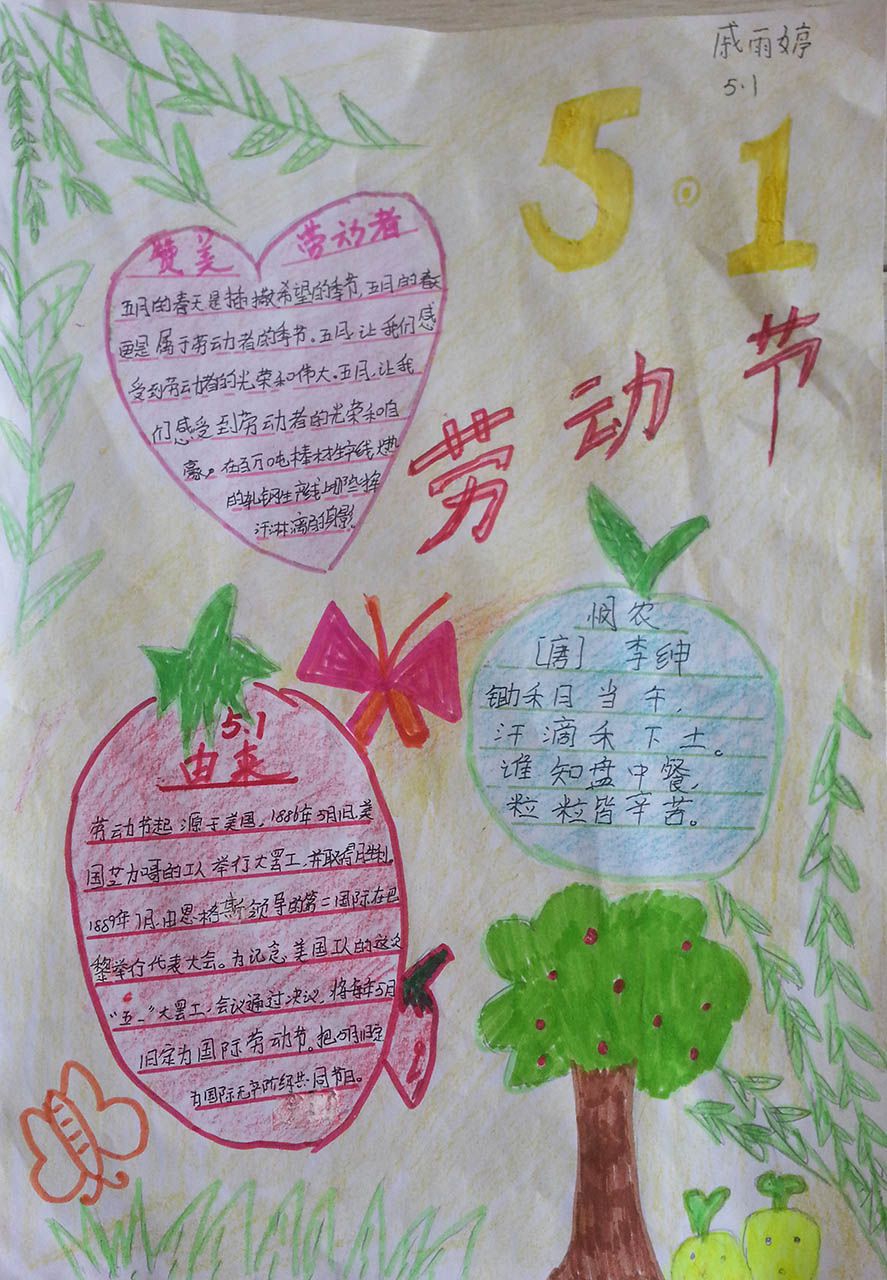 戚雨婷
5.1
5.1
劳动节
赞美 劳动者
五月的春天是播撒希望的季节,五月的春天
更是属于劳动者的季节。五月,让我们感
受到劳动者的光荣和伟大。五月,让我
们感受到劳动者的光荣和自
豪。在百万吨棒材生产线火热
的轧钢生产线上那些挥
汗淋漓的身影。
悯农
[唐] 李绅
锄禾日当午,
汗滴禾下土。
谁知盘中餐,
粒粒皆辛苦。
5.1
由来
劳动节起源于美国,1886年5月1日,美
国芝加哥的工人举行大罢工,并取得胜利。
1889年7月,由恩格斯领导的第二国际在巴
黎举行代表大会。为记念美国工人的这次
“五一”大罢工,会议通过决议,将每年5月
1日定为国际劳动节。把5月1日定
为国际无产阶级共同节日。